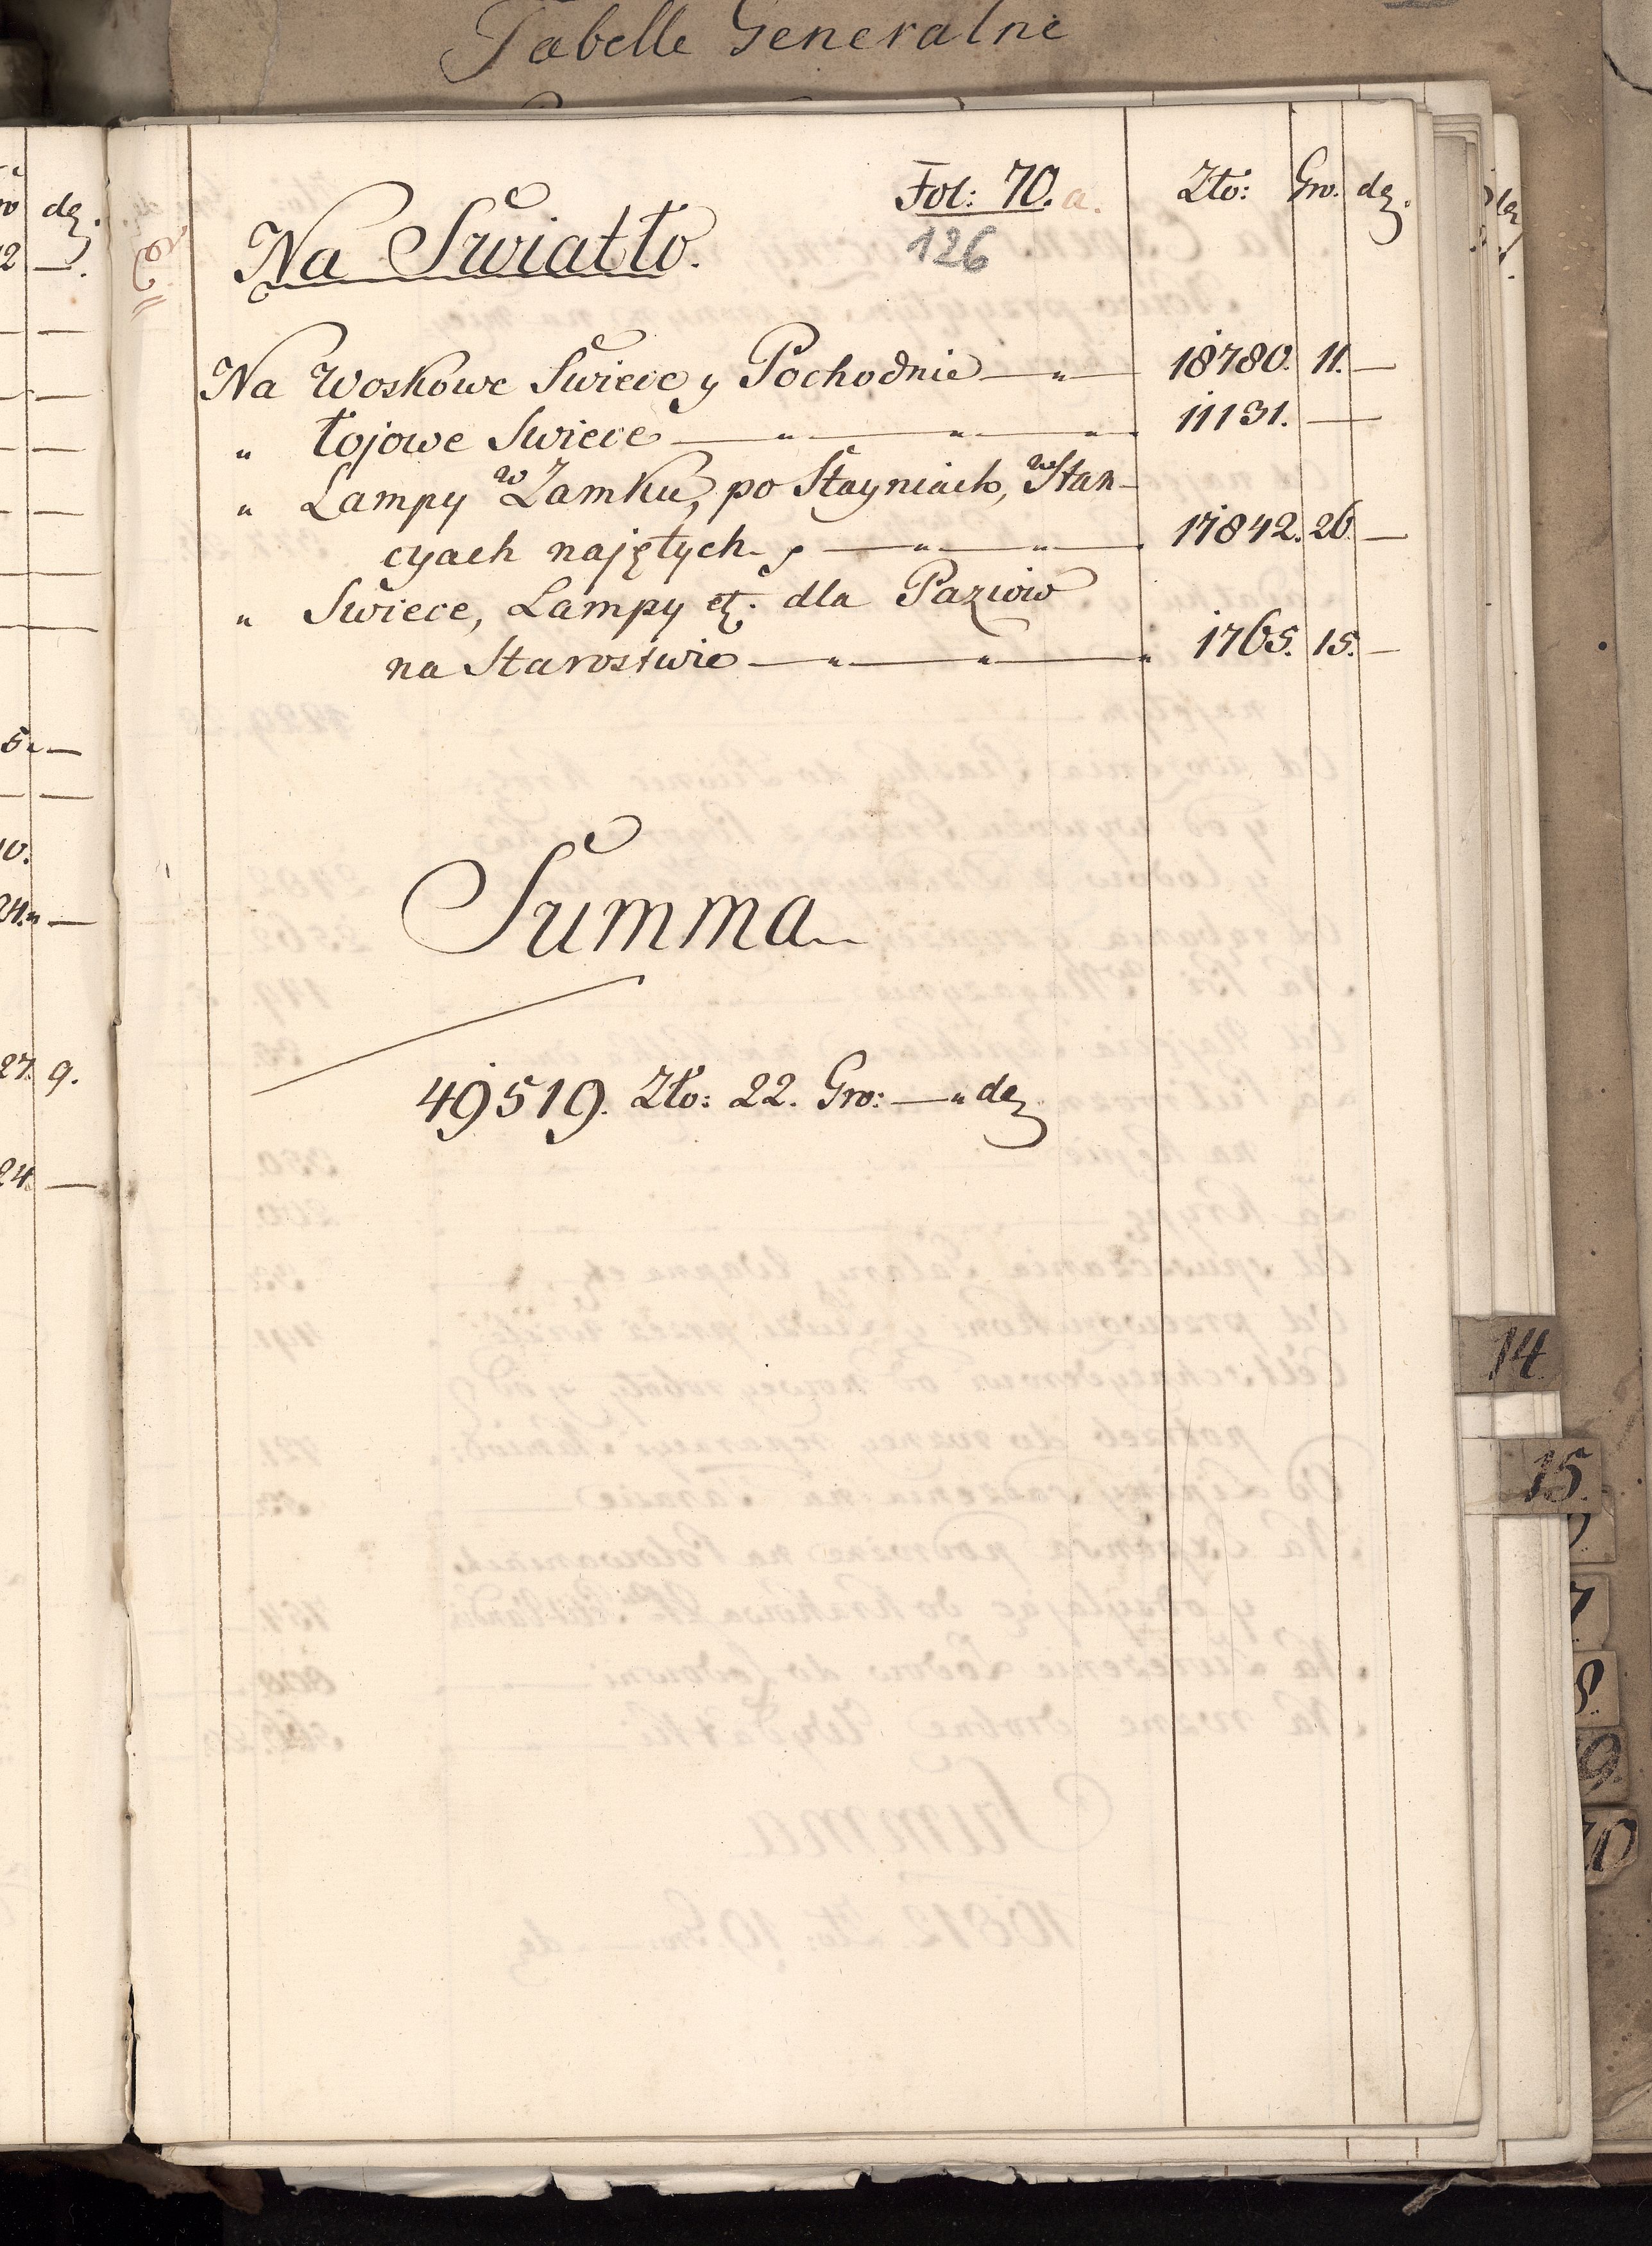 Tabelle Generalne
Fol: 70. a.
126
Zło: Gro. dę.
Na Swiatło.
Na Woskowe Swiece y Pochodnie — " — 18780. 11. —
" Łojowe Swiece — " — " — " 11131. —
" Lampy w Zamku, po Stayniach, w Stan-
cyach najętych — " — " — " 17842. 26. —
" Swiece, Lampy etc. dla Paziow
na Starostwie — " — " — " 1765. 15. —
Summa
49519. Zło: 22. Gro: — " dę
14
15.